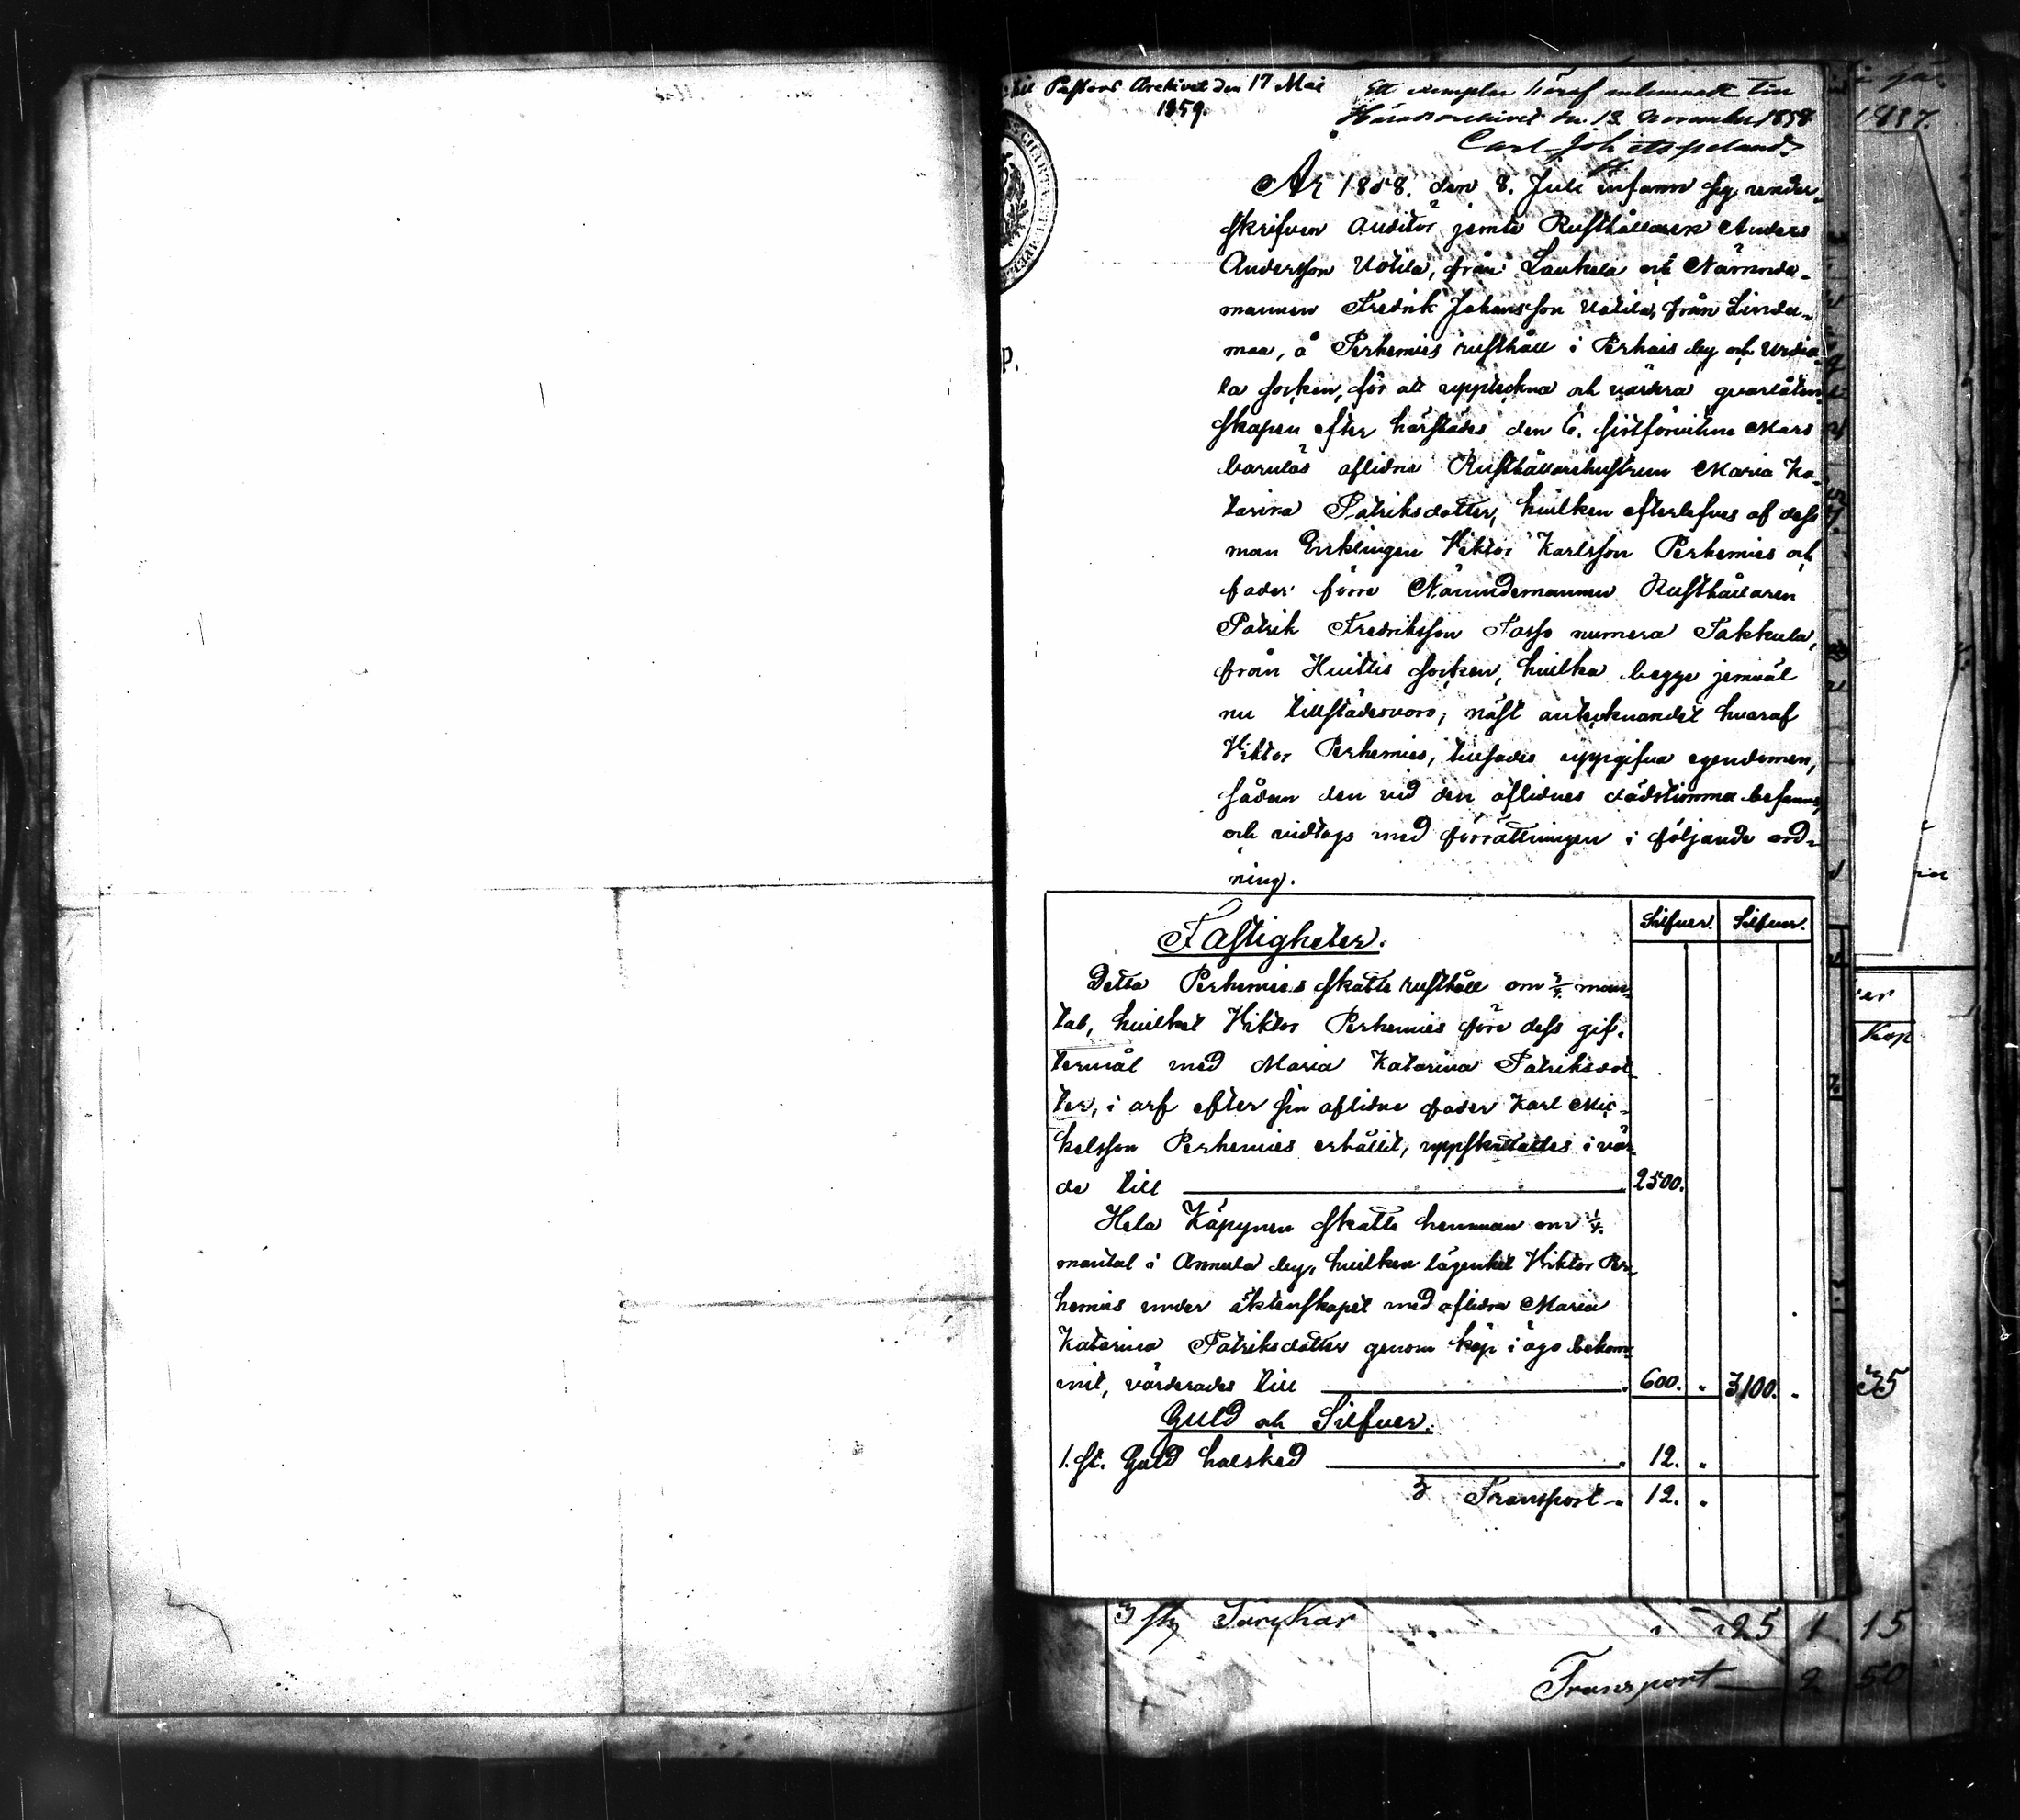 til Pastors Archivet den 17 Mai
1859.
Ett exemplar häraf inlemnadt till
Häradsarchivet den 13 November 1858
Carl Joh
År 1858. den 8. Juli infann sig under-
skrifven Auditör jemte Rusthållaren Anders
Andersson Uotila, från Laukela och Nämnde-
mannen Fredrik Johansson Uotila, från Linda-
maa, å Perhemies rusthåll i Perhais by och Urdia-
la socken, för att uppteckna och värdera qvarlåten-
skapen efter härstädes den 6. sistförvikne Mars
barnlös aflidna Rusthållarehustrun Maria Ka-
tarina Patriksdotter, hvilken efterlefves af dess
man Enklingen Viktor Karlsson Perhemies och
fader förre Nämndemannen Rusthållaren
Patrik Fredriksson Jasso numera Takkula,
från Huittis socken, hvilka begge jemväl
nu tillstädesvoro; näst antecknandet hvaraf
Viktor Perhemies, tillsades uppgifva egendomen,
sådan den vid den aflidnes dödstimma befanns,
och vidtogs med förrättningen i följande ord-
ning.
Silfver. Silfver.
Fastigheter.
Detta Perhemies skatte rusthåll om 3/4 man-
tal, hvilket Viktor Perhemies före dess gif-
termål med Maria Katarina Patriksdot-
ter, i arf efter sin aflidne fader Karl Mic-
kelsson Perhemies erhållit, uppskattades i vär-
de till 2500.
Hela Käpynen skatte hemman om 1/4.
mantal i Annula by, hvilken lägenhet Viktor Per-
hemies under äktenskapet med aflidna Maria
Katarina Patriksdotter genom köp i ägo bekom-
mit, värderades till 600. " 3100. "
Guld och Silfver.
1. st. Guld halsked 12. "
Transport 12. "
1857.
er
Kop
35
3 st. Kar " 25 1 15
Transport 2 50